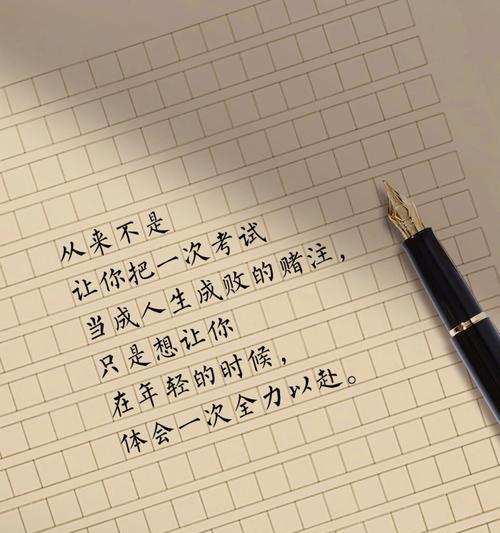 从来不是
让你把一次考试
当成人生成败的赌注，
只是想让你
在年轻的时候，
体会一次全力以赴。